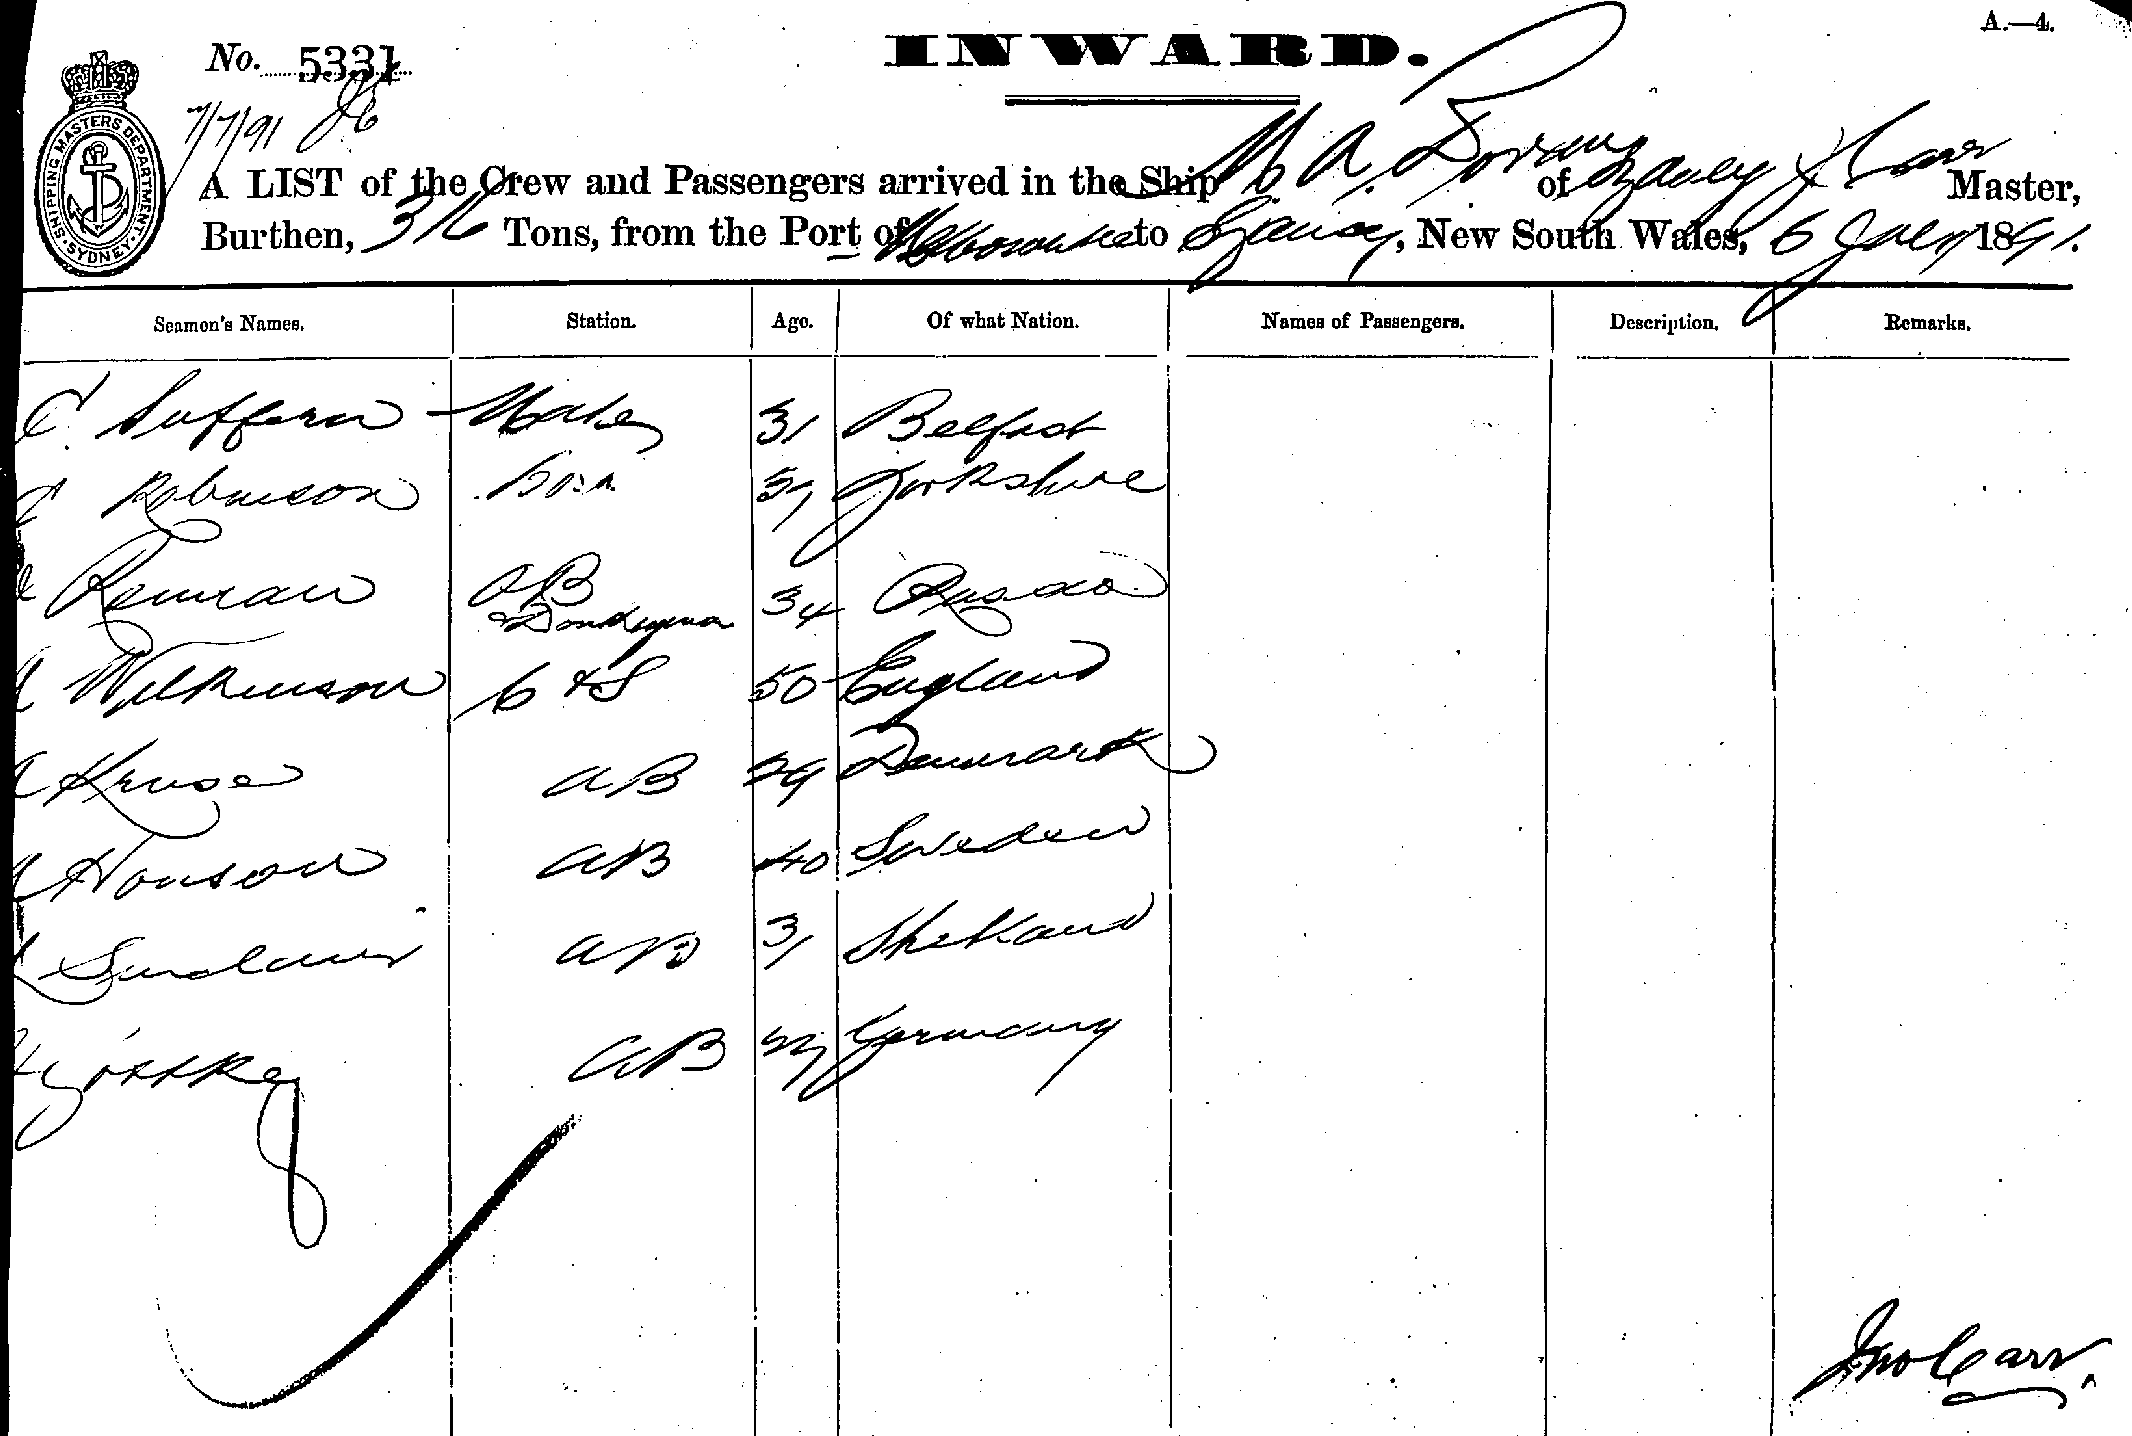 A.—4.
No. 5331
INWARD.
7/7/91
SHIPPING MASTERS DEPARTMENT SYDNEY
A LIST of the Crew and Passengers arrived in the Ship M A Doran of Sydney J Carr Master,
Burthen, 316 Tons, from the Port of Melbourne to Sydney, New South Wales, 6 July 1891.
Seamen's Names. Station. Age. Of what Nation. Names of Passengers. Description. Remarks.
Suffern Mate 31 Belfast
Robinson Bosn 37 Yorkshire
AB 34 Russia
Donkeyman
Wilkinson C & S 50 England
Kruse AB 29 Denmark
Hanson AB 40 Sweden
Sinclair AB 31 Shetland
AB Germany
Jno Carr.